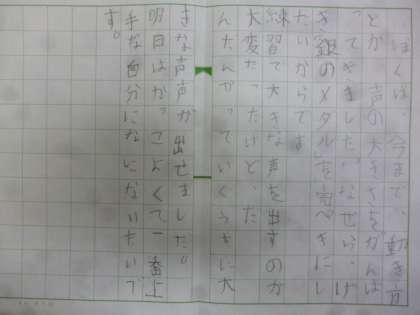 ぼくは、今まで、動き方
とか、声の大きさをがんば
ってきました。なぜい、げ
き「銀のメタル」を完ぺきにし
たいからです。
練習で大きな声を出すのが
大変だったけど、だ
んだんがっていくうちに大
きな声が出せました。
明日はかっこよくて一番上
手な自分になにないたいで
す。